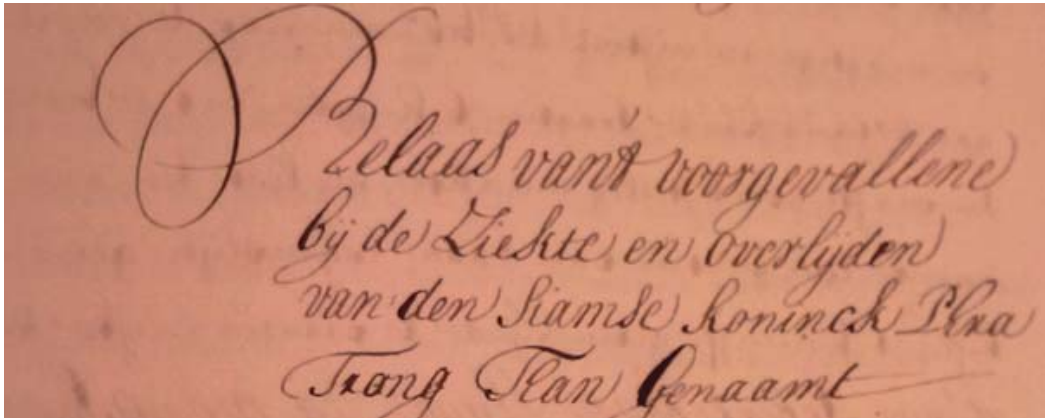 Relaas van't voorgevallene
bij de Ziekte en overlijden
van den Siamse koninck Phra
Trong Than Genaamt